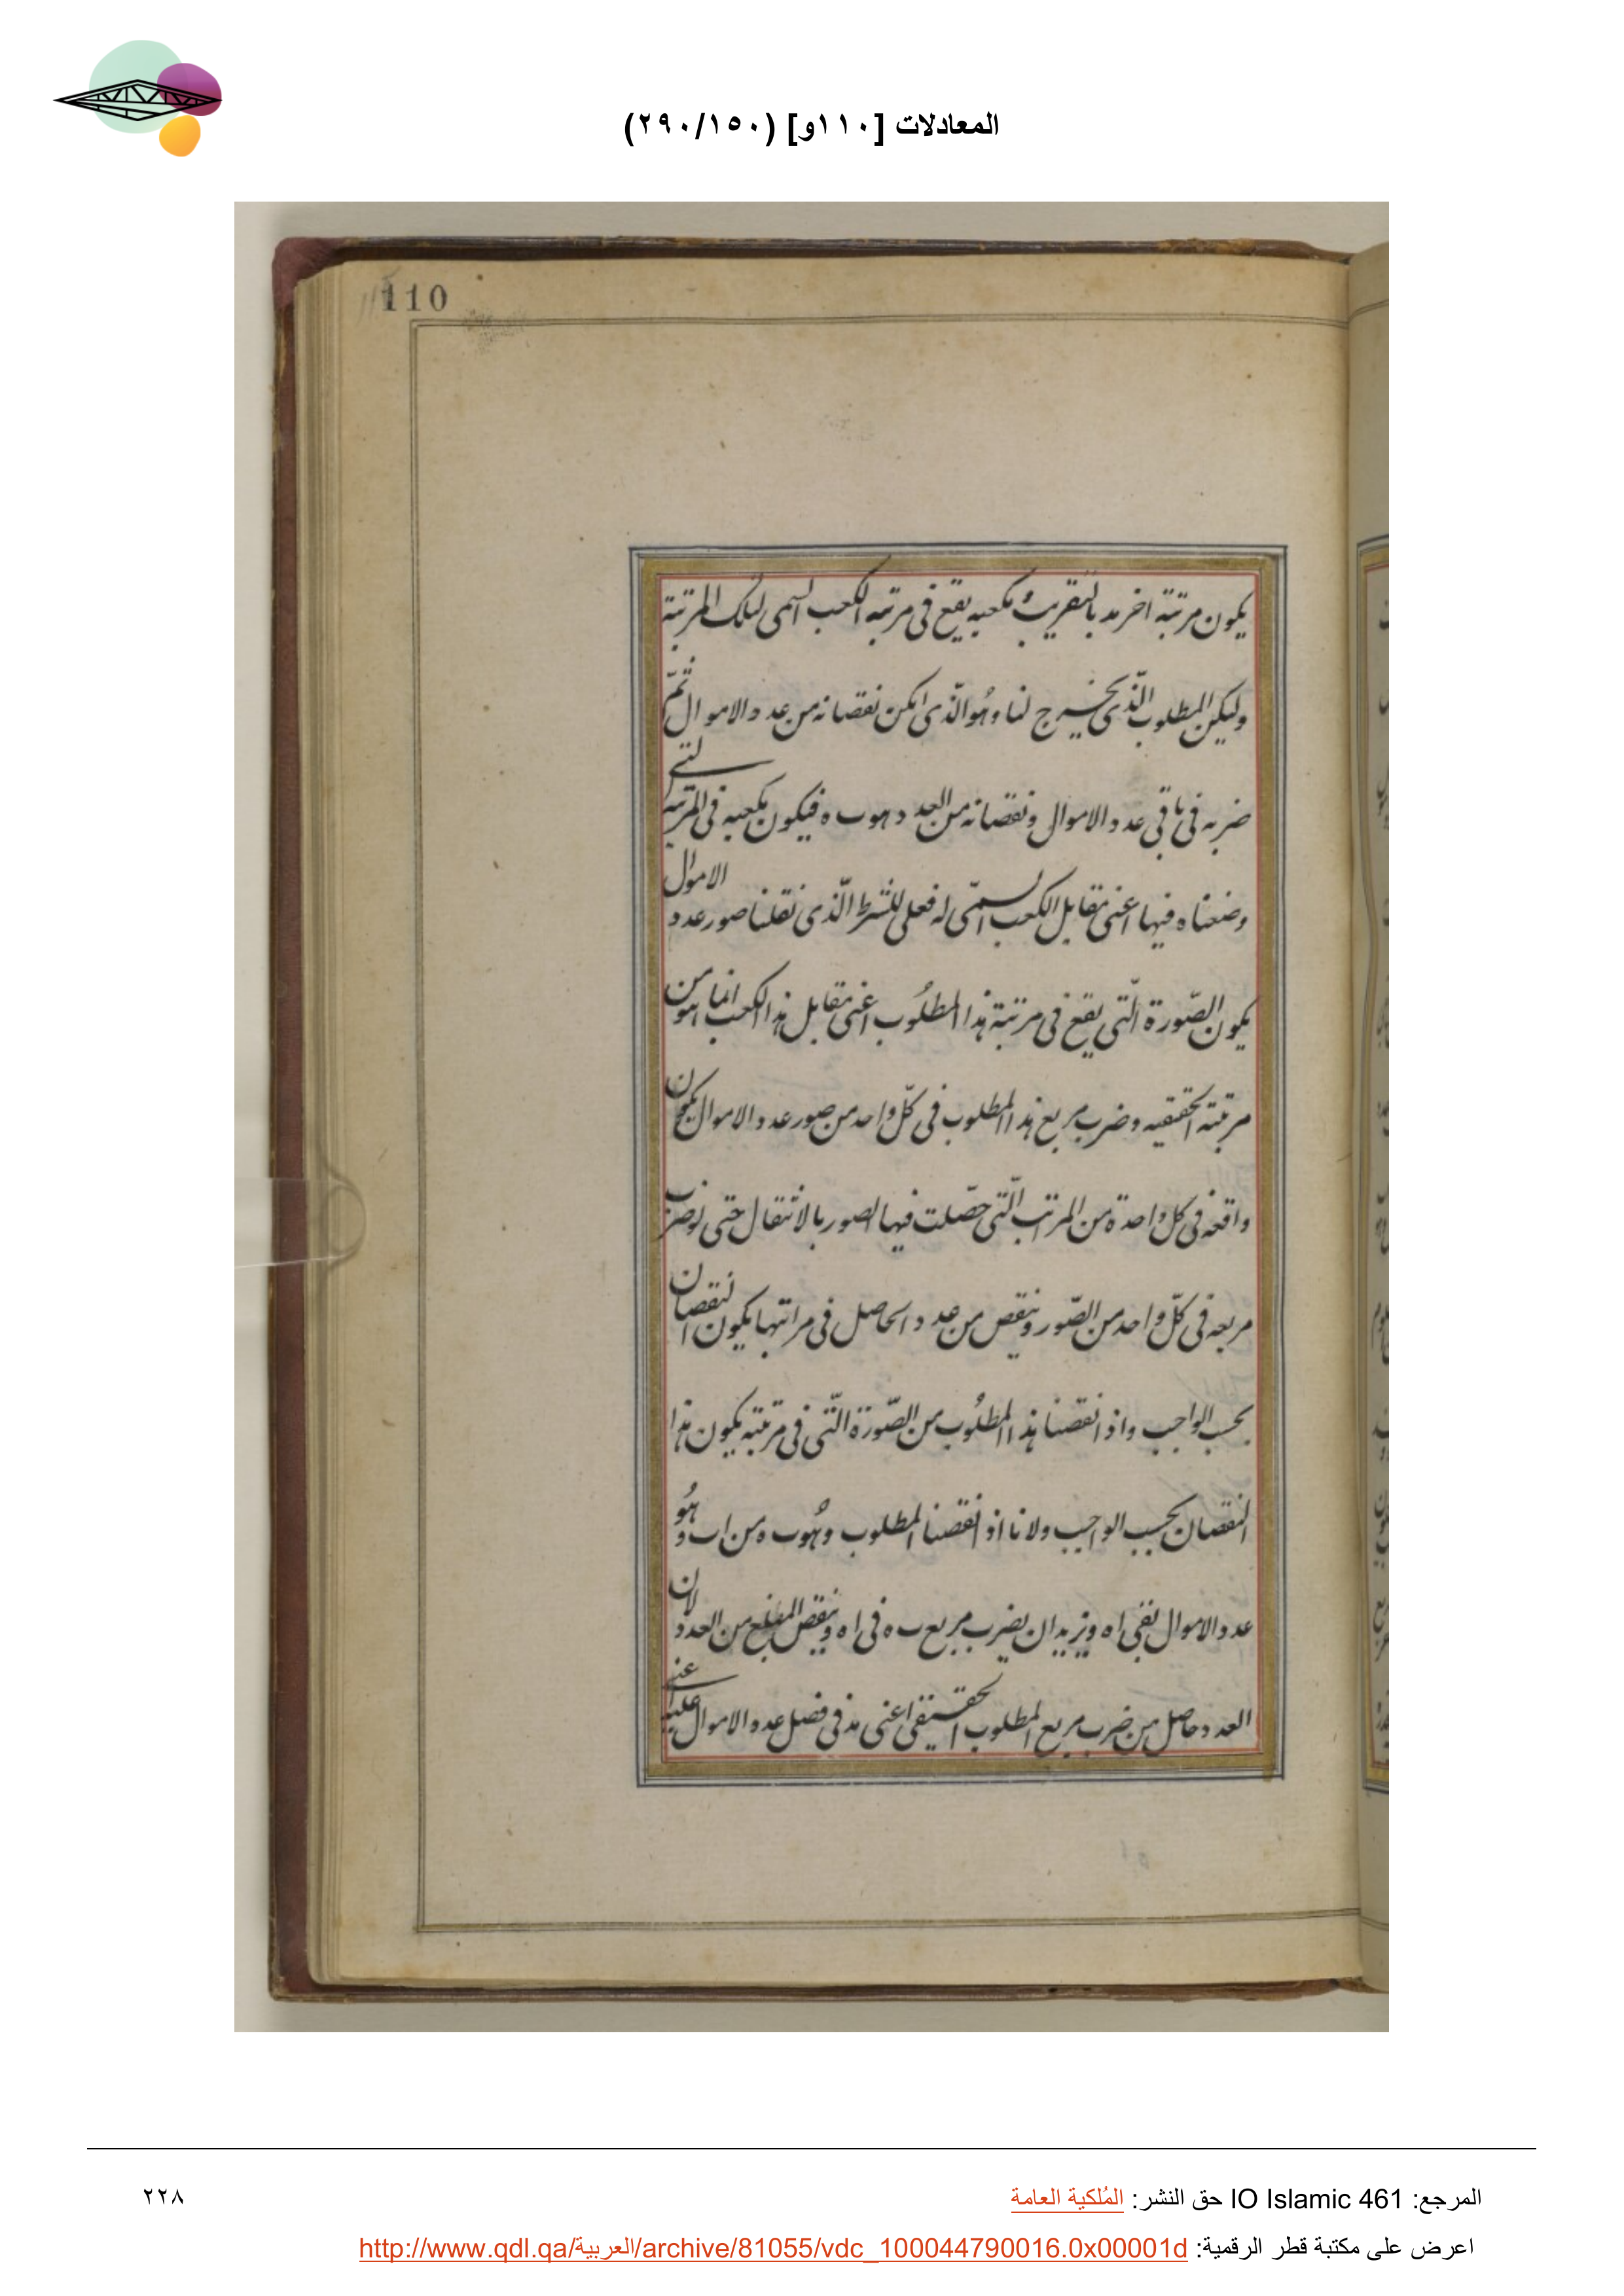 المعادلات [١١٠و] (٢٩٠/١٥٠)
110
يكون مرتبة اخر مد بالتقريب ومكعبه يقع في مرتبه الكعب السمى لتلك المرتبة
وليكن المطلوب الّذي يخرج لنا وهُو الّذي امكن نقصانه من عدد الاموال ثمّ
ضربه في باقي عدد الاموال ونقصانه من العدد وهو ب ه فيكون مكعبه في المرتبه التي
وضعناه فيها اعني مقابل الكعب السمّى له فعلى للشرط الّذي نقلنا صور عدد الاموال
يكون الصّورة الّتي يقع في مرتبة هذا المطلُوب اعني مقابل هذا الكعب انما هو من
مرتبته الحقيقيه وضرب مربع هذا المطلوب في كلّ واحد من صور عدد الاموال يكون
واقعه في كل واحدة من المرتب الّتي حصّلت فيها الصور بالانتقال حتى لو ضرب
مربعه في كلّ واحد من الصّور وينقص من عدد الحاصل في مراتبها يكون النقصان
بحسب الواجب واذا نقصنا هذا المطلُوب من الصّورة الّتي في مرتبته يكون هذا
النقصان بحسب الواجب ولانا اذ انقصنا المطلوب وهُو ب ه من اب وهُو
عدد الاموال بقى اه ونريد ان يضرب مربع ب ه في اه وينقص المبلغ من العدد لان
العدد حاصل من ضرب مربع المطلوب الحقيقي اعني مد في فضل عدد الاموال عليه اعني
المرجع: IO Islamic 461 حق النشر: المُلكية العامة
٢٢٨
اعرض على مكتبة قطر الرقمية: http://www.qdl.qa/العربية/archive/81055/vdc_100044790016.0x00001d